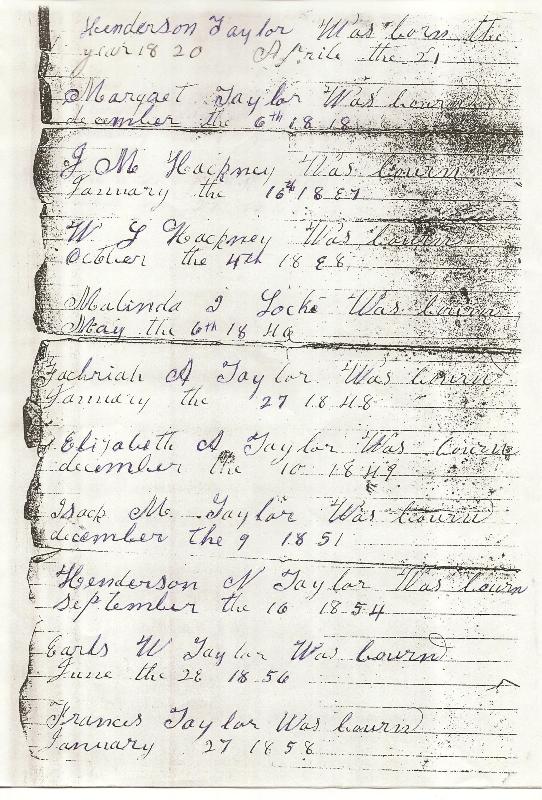 Henderson Taylor Was born the
year 18 20 Aprile the 21
Margaet Taylor Was bourn
december the 6th 18 18
J M Hackney Was bourn
January the 16th 18 87
W L Hackney Was bourn
October the 4th 18 88
Malinda J Locke Was bourn
May the 6th 18 46
Zachriah A Taylor Was bourn
January the 27 18 48
Elizabeth A Taylor Was bourn
december the 10 18 49
Isack M Taylor Was bourn
december the 9 18 51
Henderson N Taylor Was bourn
September the 16 18 54
Earls W Taylor Was bourn
June the 28 18 56
Frances Taylor Was bourn
January 27 18 58